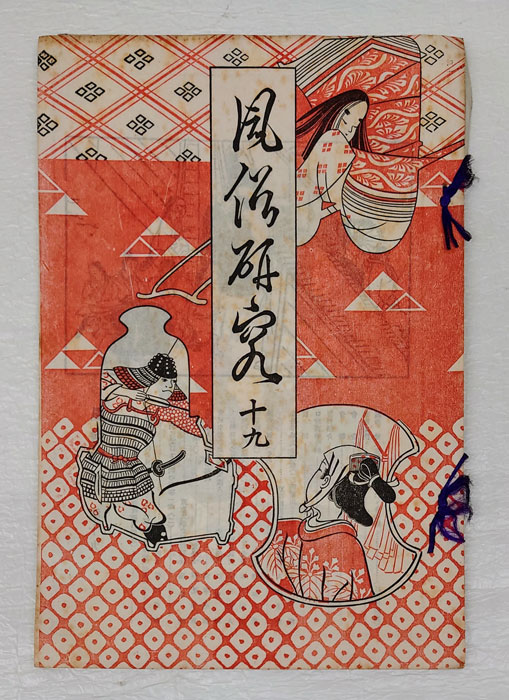 風俗研究
十九